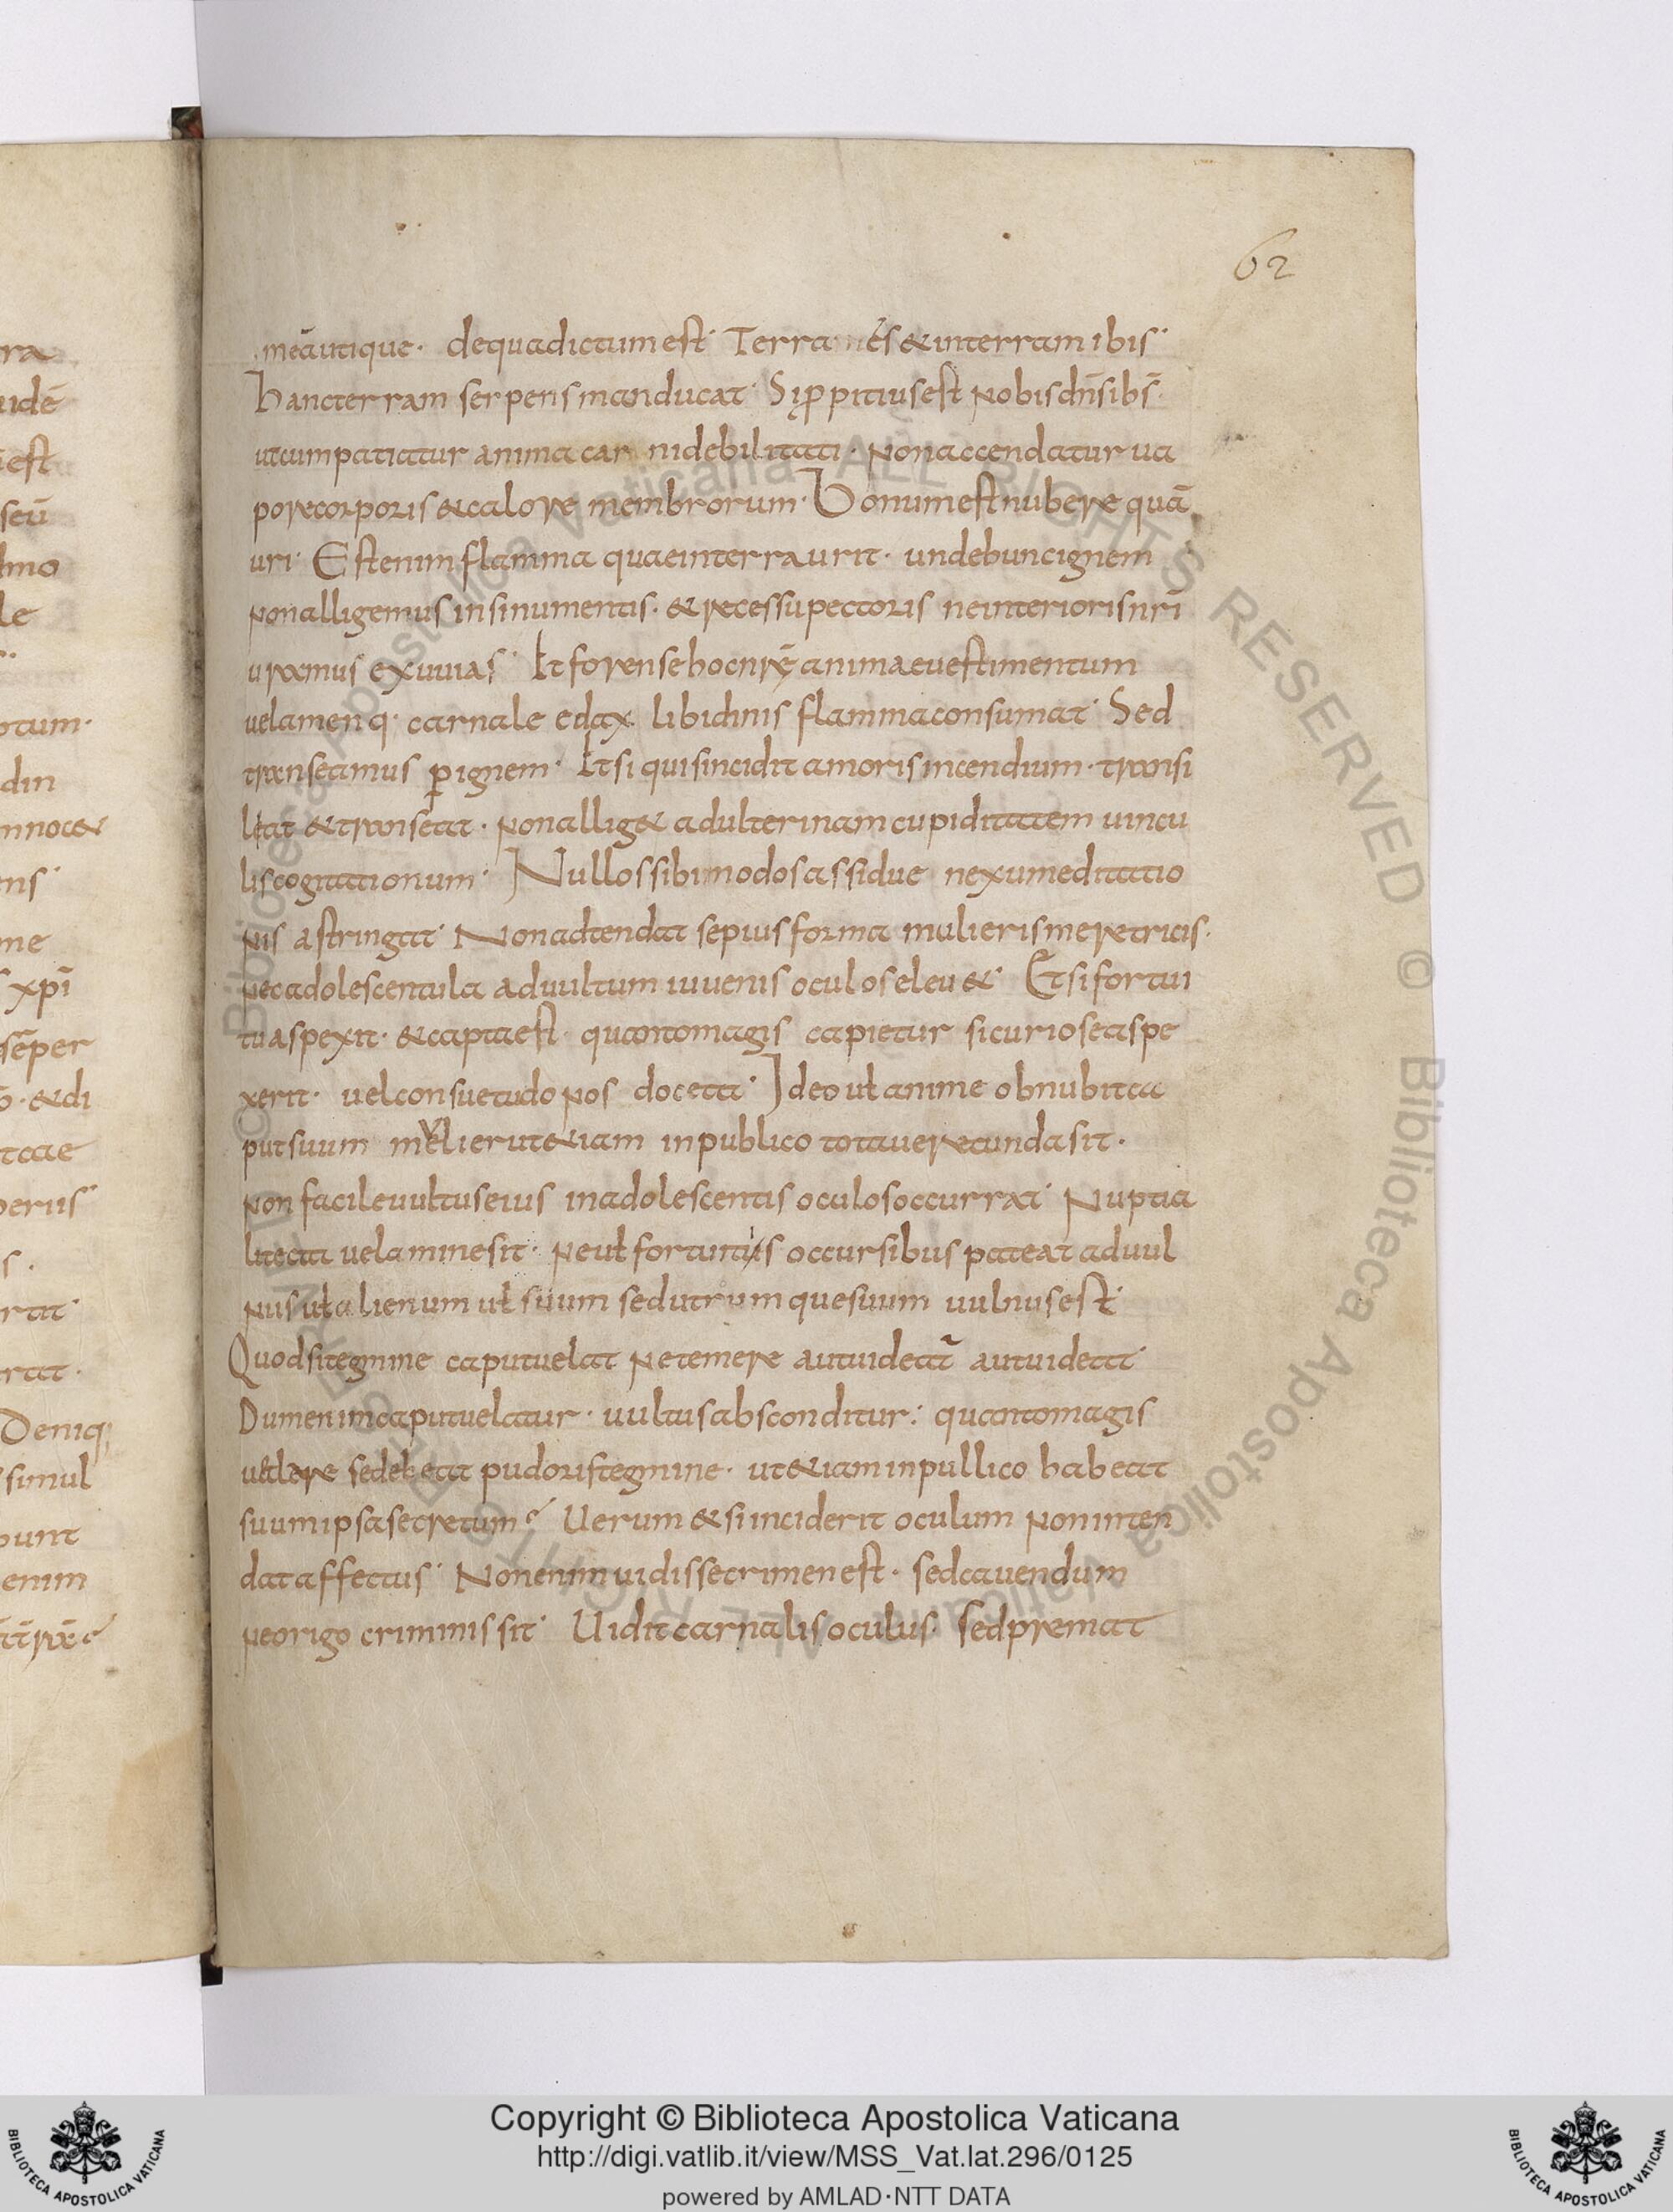 62
meā utique · de qua dictum est · Terra es & in terram ibis ·
hanc terram serpens manducat · Si ppitius est nobis dn̄s ihs̄ ·
ut cumpatiatur anima carni debilitati · Non accendatur ua
pore corporis & calore membrorum · Bonum est nubere quā
uri · Est enim flamma quae interra urit · unde hunc ignem
non alligemus in sinu mentis · & recessu pectoris ne interioris nr̄i
uramus exuuias · Et forense hoc nr̄ę animae uestimentum
uelamenq · carnale edax libidinis flamma consumat · Sed
transeamus p ignem · Et si quis incidit amoris incendium · transi
leat & transeat · Non allig& adulterinam cupiditatem uincu
lis cogitationum · Nullos sibi nodos assidue nexu meditatio
nis astringat · Non adtendat sepius forma mulieris meretricis ·
Nec adolescentula ad uultum iuuenis oculos eleu& · Et si fortui
tu aspexit · & capta est · quanto magis capietur si curiose aspe
xerit · uel consuetudo nos doceat · Ideo uł anime obnubit ca
put suum mulier ut &iam in publico tota uerecunda sit ·
Non facile uultus eius in adolescentis oculos occurrat · Nuptia
li tecta uelamine sit · Ne uł fortuitis occursibus pateat ad uul
nus uł alienum uł suum sed utrumque suum uulnus est ·
Quod si tegmine caput uelat ne temere aut uideat̄ aut uideat ·
Dum enim caput uelatur · uultus absconditur : quanto magis
uelare se debeat pudoris tegmine · ut &iam in pullico habeat
suum ipsa secretum? Uerum & si inciderit oculum non inten
dat affectus · Non enim uidisse crimen est · sed cauendum
ne origo criminis sit · Uidit carnalis oculus · sed premat
Copyright © Biblioteca Apostolica Vaticana
http://digi.vatlib.it/view/MSS_Vat.lat.296/0125
powered by AMLAD·NTT DATA
BIBLIOTECA APOSTOLICA VATICANA
BIBLIOTECA APOSTOLICA VATICANA